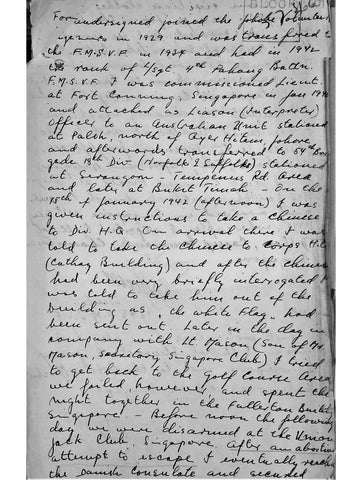 For undersigned joined the Johore Volunteer
Engineers in 1929 and was transferred to
the F.M.S.V.F. in 1937 and had in 1942
rank of L/Sgt. 4th Pahang Battn.
F.M.S.V.F. I was commissioned Lieut.
at Fort Canning, Singapore in Jan 1942
and attached as Liason (Interpreter)
Officer to an Australian Unit stationed
at Paloh, north of Ayer Hitam, Johore
and afterwards transferred to 54th Bri
gade 18th Div. (Norfolks & Suffolks) stationed
at Serangoon - Tempenus Rd. Area
and later at Bukit Timah. - On the
15th of January 1942 (afternoon) I was
given instructions to take a Chinese
to Div. H.Q. On arrival there I was
told to take the Chinese to Corps H.Q.
(Cathay Building) and after the Chinese
had been very briefly interrogated I
was told to take him out of the
building as "the White Flag" had
been sent out. Later in the day in
company with Lt. Mason (Son of Mr
Mason, Secretary Singapore Club) I tried
to get back to the Golf Course Area
we failed, however, and spent the
night together in the Fullerton Build
Singapore. - Before noon the following
day we were disarmed at the Union
Jack Club, Singapore. After an abortive
attempt to escape I eventually reached
the Danish Consulate and secured